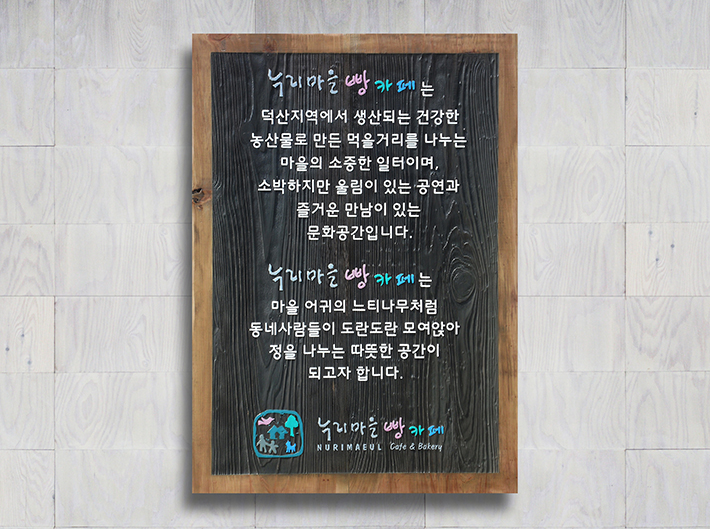 누리마을 빵 카페는
덕산지역에서 생산되는 건강한
농산물로 만든 먹을거리를 나누는
마을의 소중한 일터이며,
소박하지만 울림이 있는 공연과
즐거운 만남이 있는
문화공간입니다.
누리마을 빵 카페는
마을 어귀의 느티나무처럼
동네사람들이 도란도란 모여앉아
정을 나누는 따뜻한 공간이
되고자 합니다.
누리마을 빵 카페
NURIMAEUL Cafe & Bakery